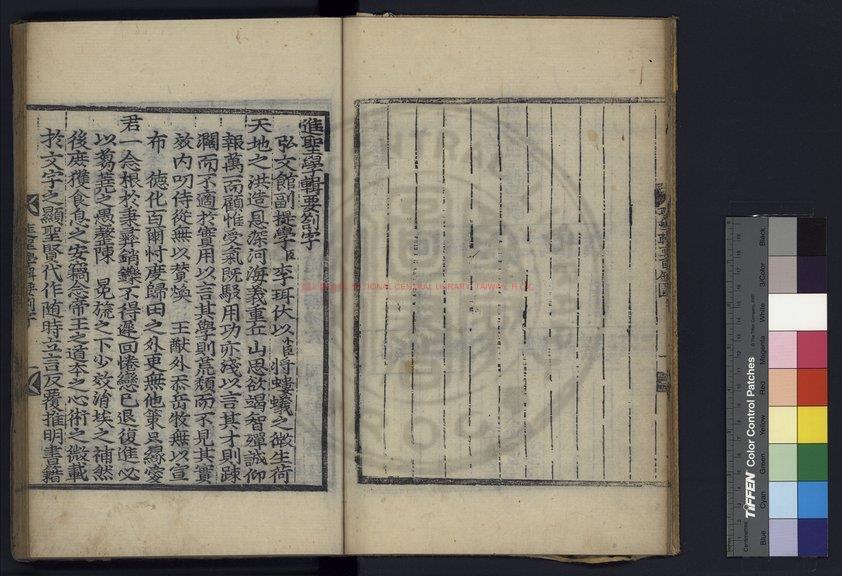 進聖學輯要劄字
弘文館副提學臣李珥伏以臣將螻蟻之微生荷
天地之洪造恩深河海義重丘山思欲竭智殫誠仰
報萬一而顧惟受氣旣駁用功亦淺以言其才則踈
濶而不適於實用以言其學則荒頹而不見其實
效內叨侍從無以贊煥 王猷外忝岳牧無以宣
布 德化百爾忖度歸田之外更無他策只緣愛
君一念根於秉彝銷鑠不得遲回惓戀已退復進必
以蒭蕘之愚罄陳 冕旒之下少效涓埃之補然
後庶獲食息之安竊念帝王之道本之心術之微載
於文字之顯聖賢代作隨時立言反覆推明書籍
NATIONAL CENTRAL LIBRARY, TAIWAN, R.O.C.
TIFFEN Color Control Patches
© The Tiffen Company, 2007
Centimetres
Blue
Cyan
Green
Yellow
Red
Magenta
White
3/Color
Black